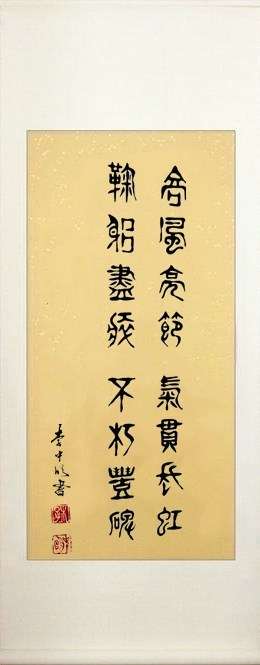 高風亮節 氣貫長虹
鞠躬盡瘁 不朽豐碑
李中書